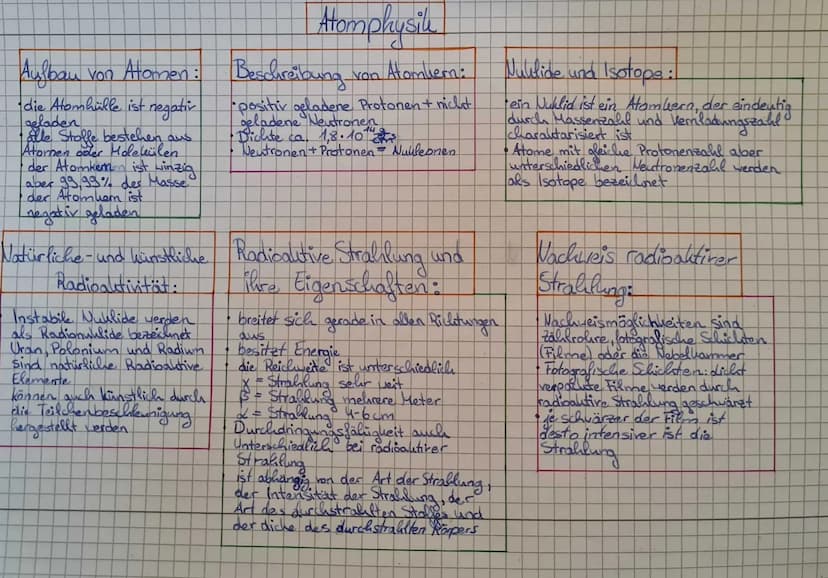 Atomphysik
Aufbau von Atomen:
• die Atomhülle ist negativ
geladen
• alle Stoffe bestehen aus
Atomen oder Molekülen
• der Atomkern ist winzig
aber 99,93% der Masse
• der Atomkern ist
negativ geladen
Beschreibung von Atomkern:
• positiv geladene Protonen + nicht
geladene Neutronen
• Dichte ca. 1,8 · 10¹⁴
• Neutronen + Protonen = Nukleonen
Nuklide und Isotope:
• ein Nuklid ist ein Atomkern, der eindeutig
durch Massenzahl und Kernladungszahl
charaktarisiert ist
• Atome mit gleiche Protonenzahl aber
unterschiedlichen Neutronenzahl werden
als Isotope bezeichnet
Natürliche- und künstliche
Radioaktivität:
Instabile Nuklide werden
als Radionuklide bezeichnet
Uran, Polonium und Radium
sind natürliche Radioaktive
Elemente
können auch künstlich durch
die Teilchenbeschleunigung
hergestellt werden
Radioaktive Strahlung und
ihre Eigenschaften:
• breitet sich gerade in allen Richtungen
aus
• besitzt Energie
• die Reichweite ist unterschiedlich
γ = Strahlung sehr weit
β = Strahlung mehrere Meter
α = Strahlung 4-6 cm
Durchdringungsfähigkeit auch
unterschiedlich bei radioaktiver
Strahlung
ist abhängig von der Art der Strahlung,
der Intensität der Strahlung, der
Art des durchstrahlten Stoffes und
der dicke des durchstrahlten Körpers
Nachweis radioaktiver
Strahlung:
• Nachweismöglichkeiten sind
Zählrohre, fotografische Schichten
(Filme) oder die Nebelkammer
• Fotografische Schichten: dicht
verpackte Filme werden durch
radioaktive Strahlung geschwärzt
• je schwärzer der Film ist
desto intensiver ist die
Strahlung